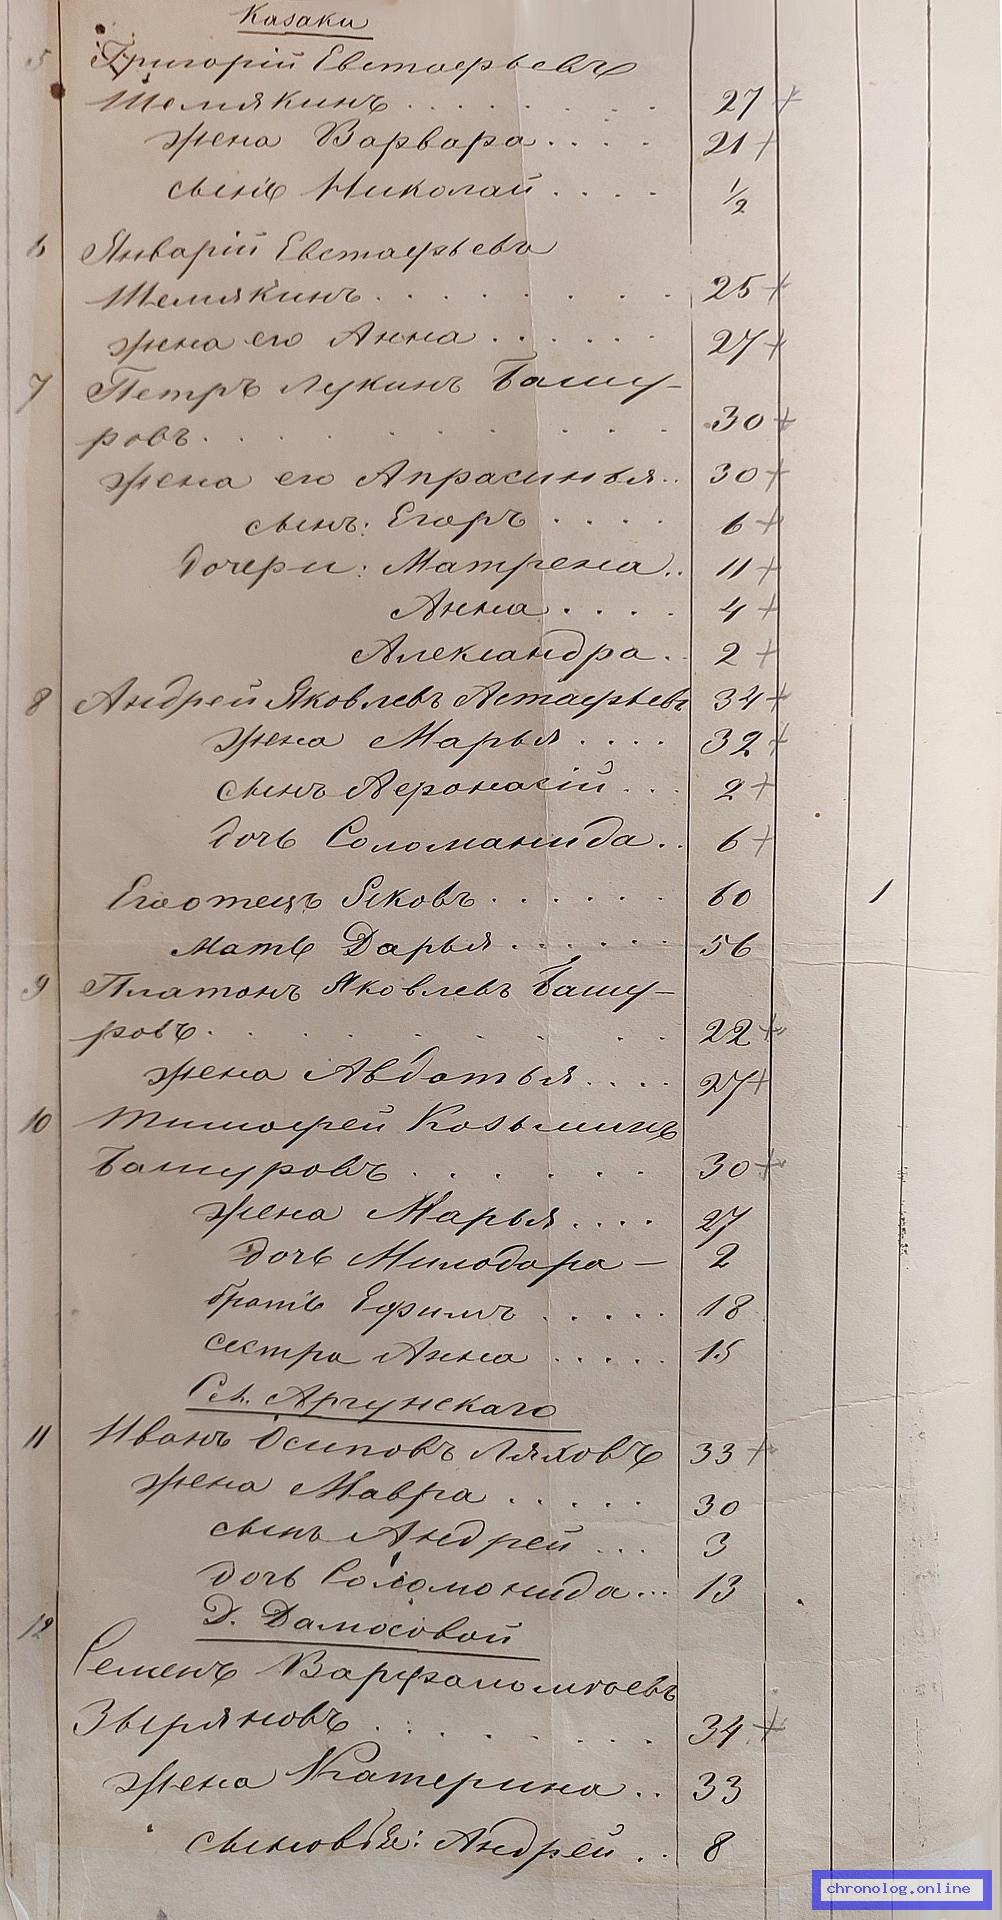 Казаки
5 Григорій Евстафьевъ
Шемякинъ . . . . . . . . 27 +
жена Варвара . . . . 21 +
сынъ Николай . . . . 1/2
6 Январій Евстафьевъ
Шемякинъ . . . . . . . . 25 +
жена его Анна . . . . . . 27 +
7 Петръ Лукинъ Башу-
ровъ . . . . . . . . . . 30 +
жена его Апрасинья . . 30 +
сынъ: Егоръ . . . . 6 +
дочери: Матрена . . 11 +
Анна . . . . 4 +
Александра . . 2 +
8 Андрей Яковлевъ Астафьевъ 34 +
жена Марья . . . . 32 +
сынъ Афонасій . . . 2 +
дочь Соломанида . . 6 +
Его отецъ Яковъ . . . . . . 60 1
мать Дарья . . . . . . 56
9 Платонъ Яковлевъ Башу-
ровъ . . . . . . . . 22 +
жена Авдотья . . . . 27 +
10 Тимофей Козьминъ
Башуровъ . . . . . . 30 +
жена Марья . . . . 27
дочь Милодора — 2
братъ Ефимъ . . . . . 18
сестра Анна . . . . . 15
Ст. Аргунскаго
11 Иванъ Осиповъ Ляховъ 33 +
жена Мавра . . . . . 30
сынъ Андрей . . . 3
дочь Соломонида . . . 13
12 Д. Дамосовой
Семенъ Варфаломѣевъ
Зверяновъ . . . . . . . 34 +
жена Катерина . . 33
сыновья: Андрей . . 8
chronolog.online